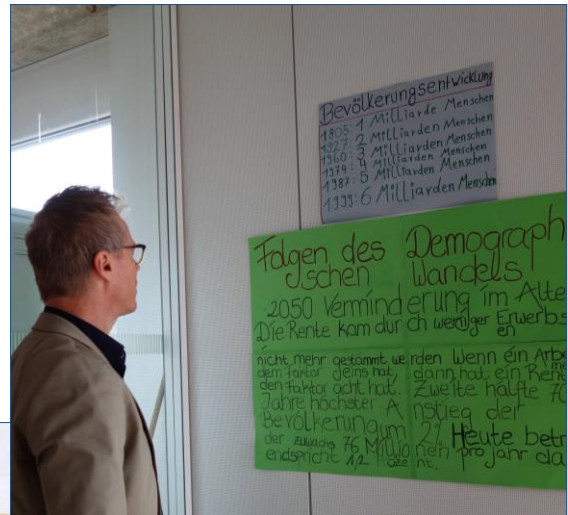 Bevölkerungsentwicklung
1805: 1 Milliarde Menschen
1927: 2 Milliarden Menschen
1960: 3 Milliarden Menschen
1974: 4 Milliarden Menschen
1987: 5 Milliarden Menschen
1999: 6 Milliarden Menschen
Folgen des Demograph
schen Wandels
2050 Verminderung im Alte
Die Rente kam durch weniger Erwerbs
en
nicht mehr gestämmt werden Wenn ein Arbe
dem Faktor eins hat, dann hat ein Rent
den Faktor acht hat. Zweite hälfte 70
Jahre höchster Anstieg der
Bevölkerung um 2% Heute betr
der zuwachs 76 Millionen pro Jahr da
endspricht 1,2 Prozent.